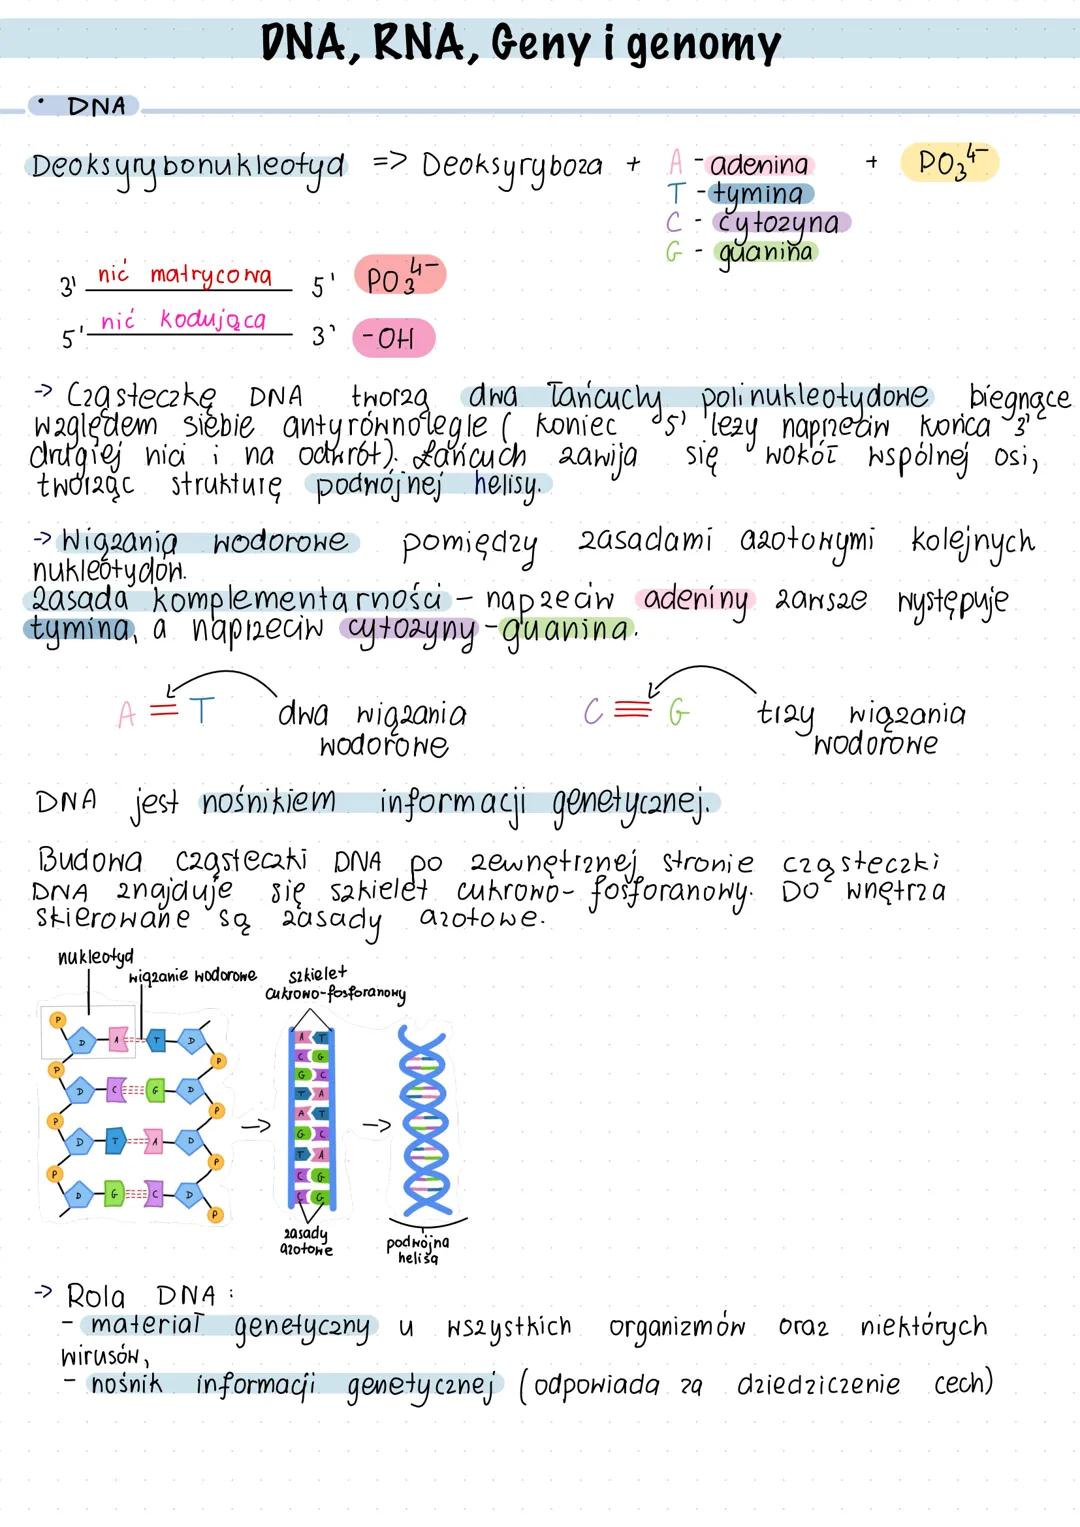 DNA, RNA, Geny i genomy
• DNA
Deoksyrybonukleotyd => Deoksyryboza + A - adenina + PO₃⁴⁻
T - tymina
C - cytozyna
G - guanina
3' nić matrycowa 5' PO₃⁴⁻
5' nić kodująca 3' -OH
-> Cząsteczkę DNA tworzą dwa łańcuchy polinukleotydowe biegnące
względem siebie antyrównolegle ( koniec 5' leży naprzeciw końca 3'
drugiej nici i na odwrót). Łańcuch zawija się wokół wspólnej osi,
tworząc strukturę podwójnej helisy.
-> Wiązania wodorowe pomiędzy zasadami azotowymi kolejnych
nukleotydów.
Zasada komplementarności - napzeciw adeniny zawsze występuje
tymina, a naprzeciw cytozyny - guanina.
A = T dwa wiązania C ≡ G trzy wiązania
wodorowe wodorowe
DNA jest nośnikiem informacji genetycznej.
Budowa cząsteczki DNA po zewnętrznej stronie cząsteczki
DNA znajduje się szkielet cukrowo-fosforanowy. Do wnętrza
skierowane są zasady azotowe.
nukleotyd
wiązanie wodorowe szkielet
cukrowo-fosforanowy
P
D A T D
P P
D C G D
P P
D T A D
P P
D G C D
P
A T
C G
G C
T A
A T
G C
T A
C G
C G
zasady
azotowe
podwójna
helisa
-> Rola DNA :
- materiał genetyczny u wszystkich organizmów oraz niektórych
wirusów,
- nośnik informacji genetycznej (odpowiada za dziedziczenie cech)